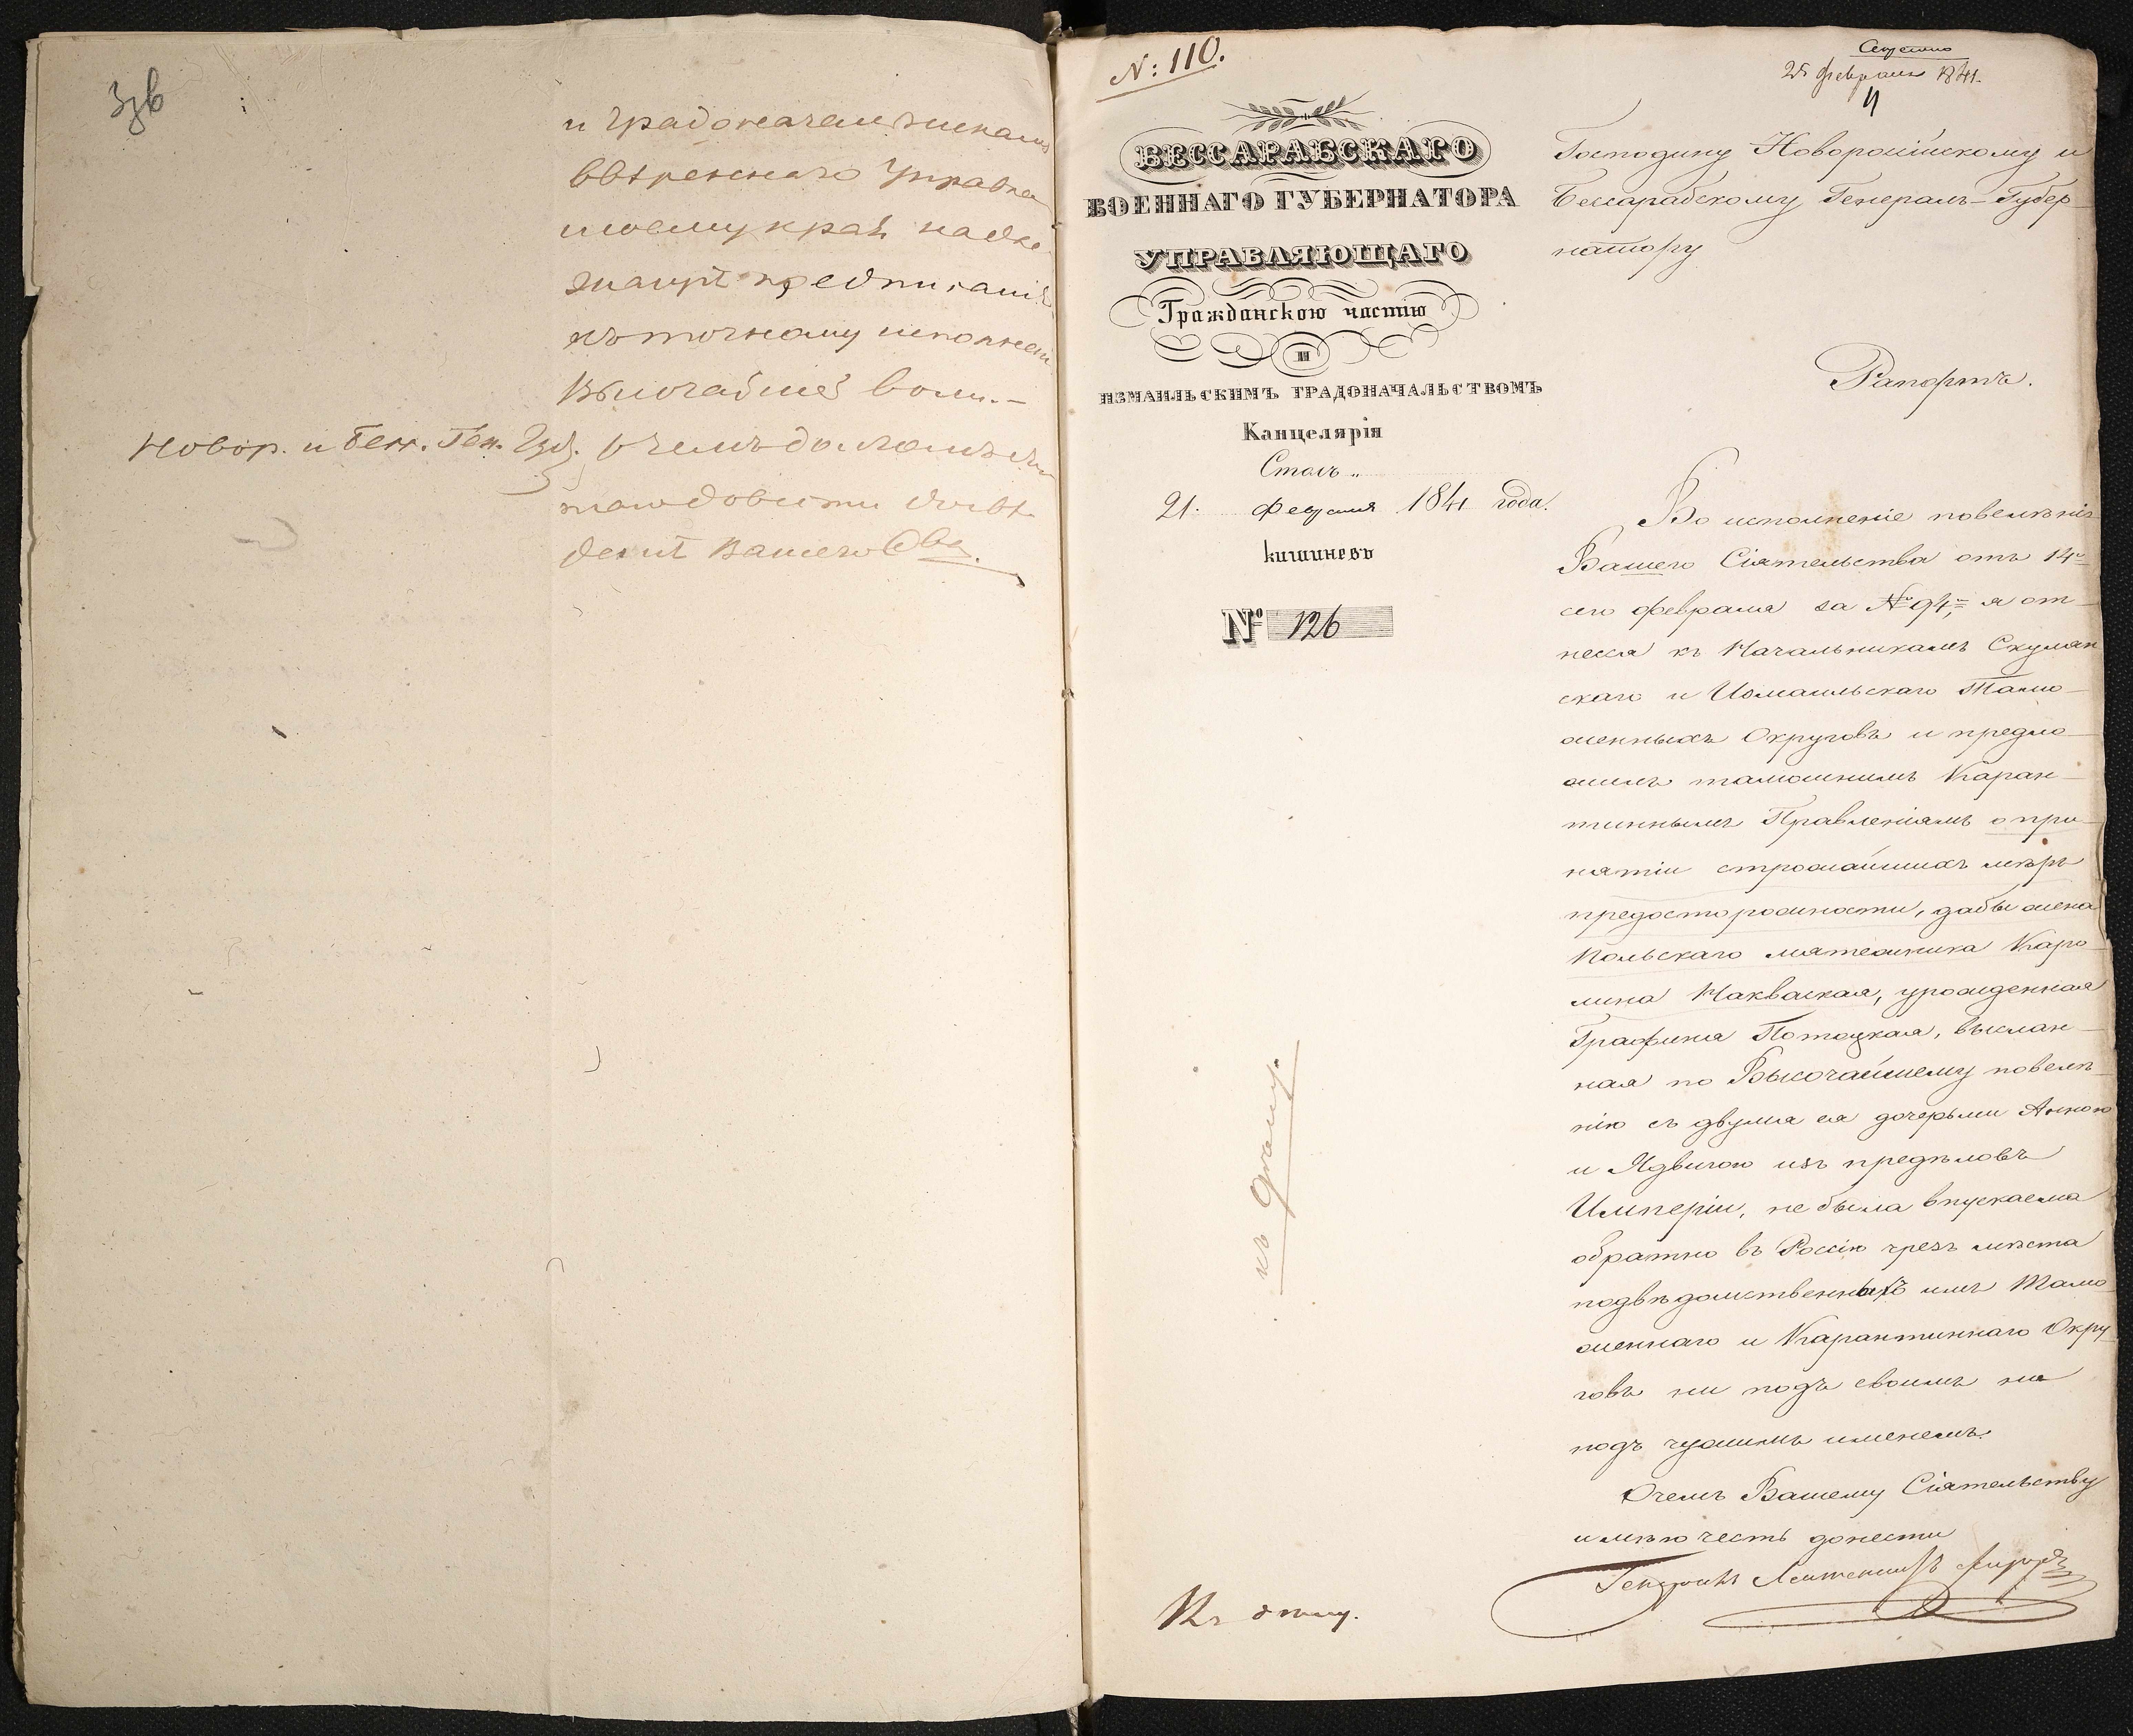 3 в
и Градоначальникамъ
ввѣреннаго Управле
моему края надле
жащія предписанія
къ точному исполненію
Высочайшей воли.—
Новор. и Бесс. Ген. Губ.
о чемъ долгомъ
вашего
N: 110.
БЕССАРАБСКАГО
ВОЕННАГО ГУБЕРНАТОРА
УПРАВЛЯЮЩАГО
Гражданскою частію
И
ИЗМАИЛЬСКИМЪ ГРАДОНАЧАЛЬСТВОМЪ
Канцелярія
Столъ „
21. Февраля 1841 года.
кишиневъ
№ 126
къ дѣлу.
Къ дѣлу.
25 февраля 1841.
4
Господину Новороссійскому и
Бессарабскому Генералъ-Губер
натору
Рапортъ.
Во исполненіе повелѣнія
Вашего Сіятельства отъ 14го
сего февраля за № 94м, я от
несся къ Начальникамъ Скулян
скаго и Измаильскаго Тамо
женныхъ Округовъ и предло
жилъ тамошнимъ Каран
тиннымъ Правленіямъ о при
нятіи строжайшихъ мѣръ
предосторожности, дабы жена
Польскаго мятежника Каро
лина Накваская, урожденная
Графиня Потоцкая, выслан
ная по Высочайшему повелѣ
нію съ двумя ея дочерьми Анною
и Ядвигою изъ предѣловъ
Имперіи, не была впускаема
обратно въ Россію чрезъ мѣста
подвѣдомственныхъ имъ Тамо
женнаго и Карантиннаго Окру
говъ ни подъ своимъ ни
подъ чужимъ именемъ.
О чемъ Вашему Сіятельству
имѣю честь донести
Генералъ Лейтенантъ